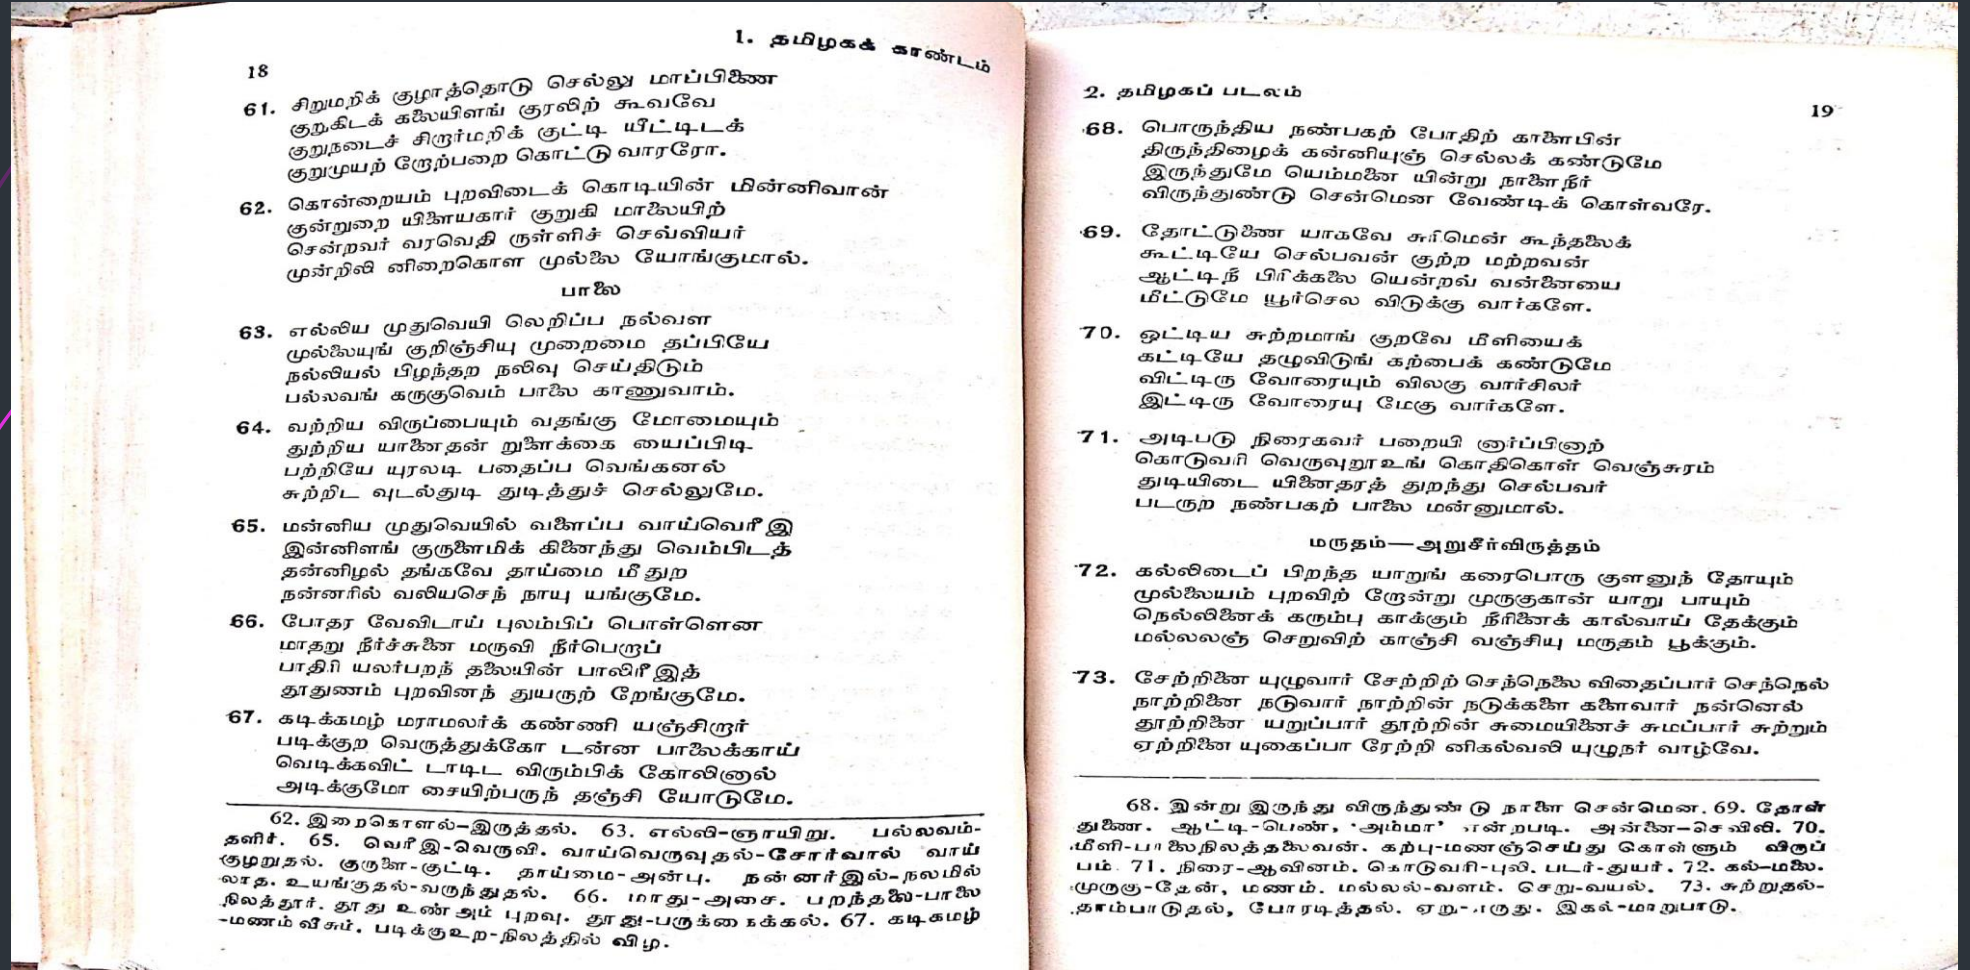 1. தமிழகக் காண்டம்
18
61. சிறுமறிக் குழாத்தொடு செல்லு மாப்பிணை
குறுகிடக் கலையிளங் குரலிற் கூவவே
குறுநடைச் சிறார்மறிக் குட்டி யீட்டிடக்
குறுமுயற் றோற்பறை கொட்டு வாரரோ.
62. கொன்றையம் புறவிடைக் கொடியின் மின்னிவான்
குன்றுறை யிளையகார் குறுகி மாலையிற்
சென்றவர் வரவெதி ருள்ளிச் செவ்வியர்
முன்றிலி னிறைகொள முல்லை யோங்குமால்.
பாலை
63. எல்லிய முதுவெயி லெறிப்ப நல்வள
முல்லையுங் குறிஞ்சியு முறைமை தப்பியே
நல்லியல் பிழந்தற நலிவு செய்திடும்
பல்லவங் கருகுவெம் பாலை காணுவாம்.
64. வற்றிய விருப்பையும் வதங்கு மோமையும்
துற்றிய யானைதன் றுளைக்கை யைப்பிடி
பற்றியே யுரலடி பதைப்ப வெங்கனல்
சுற்றிட வுடல்துடி துடித்துச் செல்லுமே.
65. மன்னிய முதுவெயில் வளைப்ப வாய்வெரீஇ
இன்னிளங் குருளைமிக் கினைந்து வெம்பிடத்
தன்னிழல் தங்கவே தாய்மை மீதுற
நன்னரில் வலியசெந் நாயு யங்குமே.
66. போதர வேவிடாய் புலம்பிப் பொள்ளென
மாதறு நீர்ச்சுனை மருவி நீர்பெறாப்
பாதிரி யலர்பறந் தலையின் பாலிரீஇத்
தூதுணம் புறவினந் துயருற் றேங்குமே.
67. கடிக்கமழ் மராமலர்க் கண்ணி யஞ்சிறார்
படிக்குற வெருத்துக்கோ டன்ன பாலைக்காய்
வெடிக்கவிட் டாடிட விரும்பிக் கோலினால்
அடிக்குமோ சையிற்பருந் தஞ்சி யோடுமே.
62. இறைகொளல்–இருத்தல். 63. எல்லி–ஞாயிறு. பல்லவம்-
தளிர். 65. வெரீஇ-வெருவி. வாய்வெருவுதல்-சோர்வால் வாய்
குழறுதல். குருளை-குட்டி. தாய்மை-அன்பு. நன்னர்இல்–நலமில்
லாத. உயங்குதல்-வருந்துதல். 66. மாது-அசை. பறந்தலை-பாலை
நிலத்தூர். தூது உண் அம் புறவு. தூது-பருக்கைக்கல். 67. கடிகமழ்
-மணம் வீசும். படிக்குஉற-நிலத்தில் விழ.
2. தமிழகப் படலம்
19
68. பொருந்திய நண்பகற் போதிற் காளைபின்
திருந்திழைக் கன்னியுஞ் செல்லக் கண்டுமே
இருந்துமே யெம்மனை யின்று நாளைநீர்
விருந்துண்டு சென்மென வேண்டிக் கொள்வரே.
69. தோட்டுணை யாகவே சுரிமென் கூந்தலைக்
கூட்டியே செல்பவன் குற்ற மற்றவன்
ஆட்டிநீ பிரிக்கலை யென்றவ் வன்னையை
மீட்டுமே யூர்செல விடுக்கு வார்களே.
70. ஒட்டிய சுற்றமாங் குறவே மீளியைக்
கட்டியே தழுவிடுங் கற்பைக் கண்டுமே
விட்டிரு வோரையும் விலகு வார்சிலர்
இட்டிரு வோரையு மேகு வார்களே.
71. அடிபடு நிரைகவர் பறையி னார்ப்பினாற்
கொடுவரி வெருவுறூஉங் கொதிகொள் வெஞ்சுரம்
துடியிடை யினைதரத் துறந்து செல்பவர்
படருற நண்பகற் பாலை மன்னுமால்.
மருதம்—அறுசீர்விருத்தம்
72. கல்லிடைப் பிறந்த யாறுங் கரைபொரு குளனுந் தோயும்
முல்லையம் புறவிற் றோன்று முருகுகான் யாறு பாயும்
நெல்லினைக் கரும்பு காக்கும் நீரினைக் கால்வாய் தேக்கும்
மல்லலஞ் செறுவிற் காஞ்சி வஞ்சியு மருதம் பூக்கும்.
73. சேற்றினை யுழுவார் சேற்றிற் செந்நெலை விதைப்பார் செந்நெல்
நாற்றினை நடுவார் நாற்றின் நடுக்களை களைவார் நன்னெல்
தூற்றினை யறுப்பார் தூற்றின் சுமையினைச் சுமப்பார் சுற்றும்
ஏற்றினை யுகைப்பா ரேற்றி னிகல்வலி யுழுநர் வாழ்வே.
68. இன்று இருந்து விருந்துண்டு நாளை சென்மென. 69. தோள்
துணை. ஆட்டி-பெண், 'அம்மா' என்றபடி. அன்னை–செவிலி. 70.
மீளி-பாலைநிலத்தலைவன். கற்பு-மணஞ்செய்து கொள்ளும் விருப்
பம். 71. நிரை-ஆவினம். கொடுவரி-புலி. படர்-துயர். 72. கல்–மலை.
முருகு-தேன், மணம். மல்லல்-வளம். செறு-வயல். 73. சுற்றுதல்-
தாம்பாடுதல், போரடித்தல். ஏறு-எருது. இகல்-மாறுபாடு.